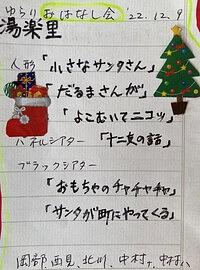 ゆらりおはなし会 '22.12.9
湯楽里
人形 「小さなサンタさん」
「だるまさんが」
「よこむいてニコッ」
パネルシアター 「十二支の話」
ブラックシアター
「おもちゃのチャチャチャ」
「サンタが町にやってくる」
岡部、西見、北川、中村ナ、中村ハ